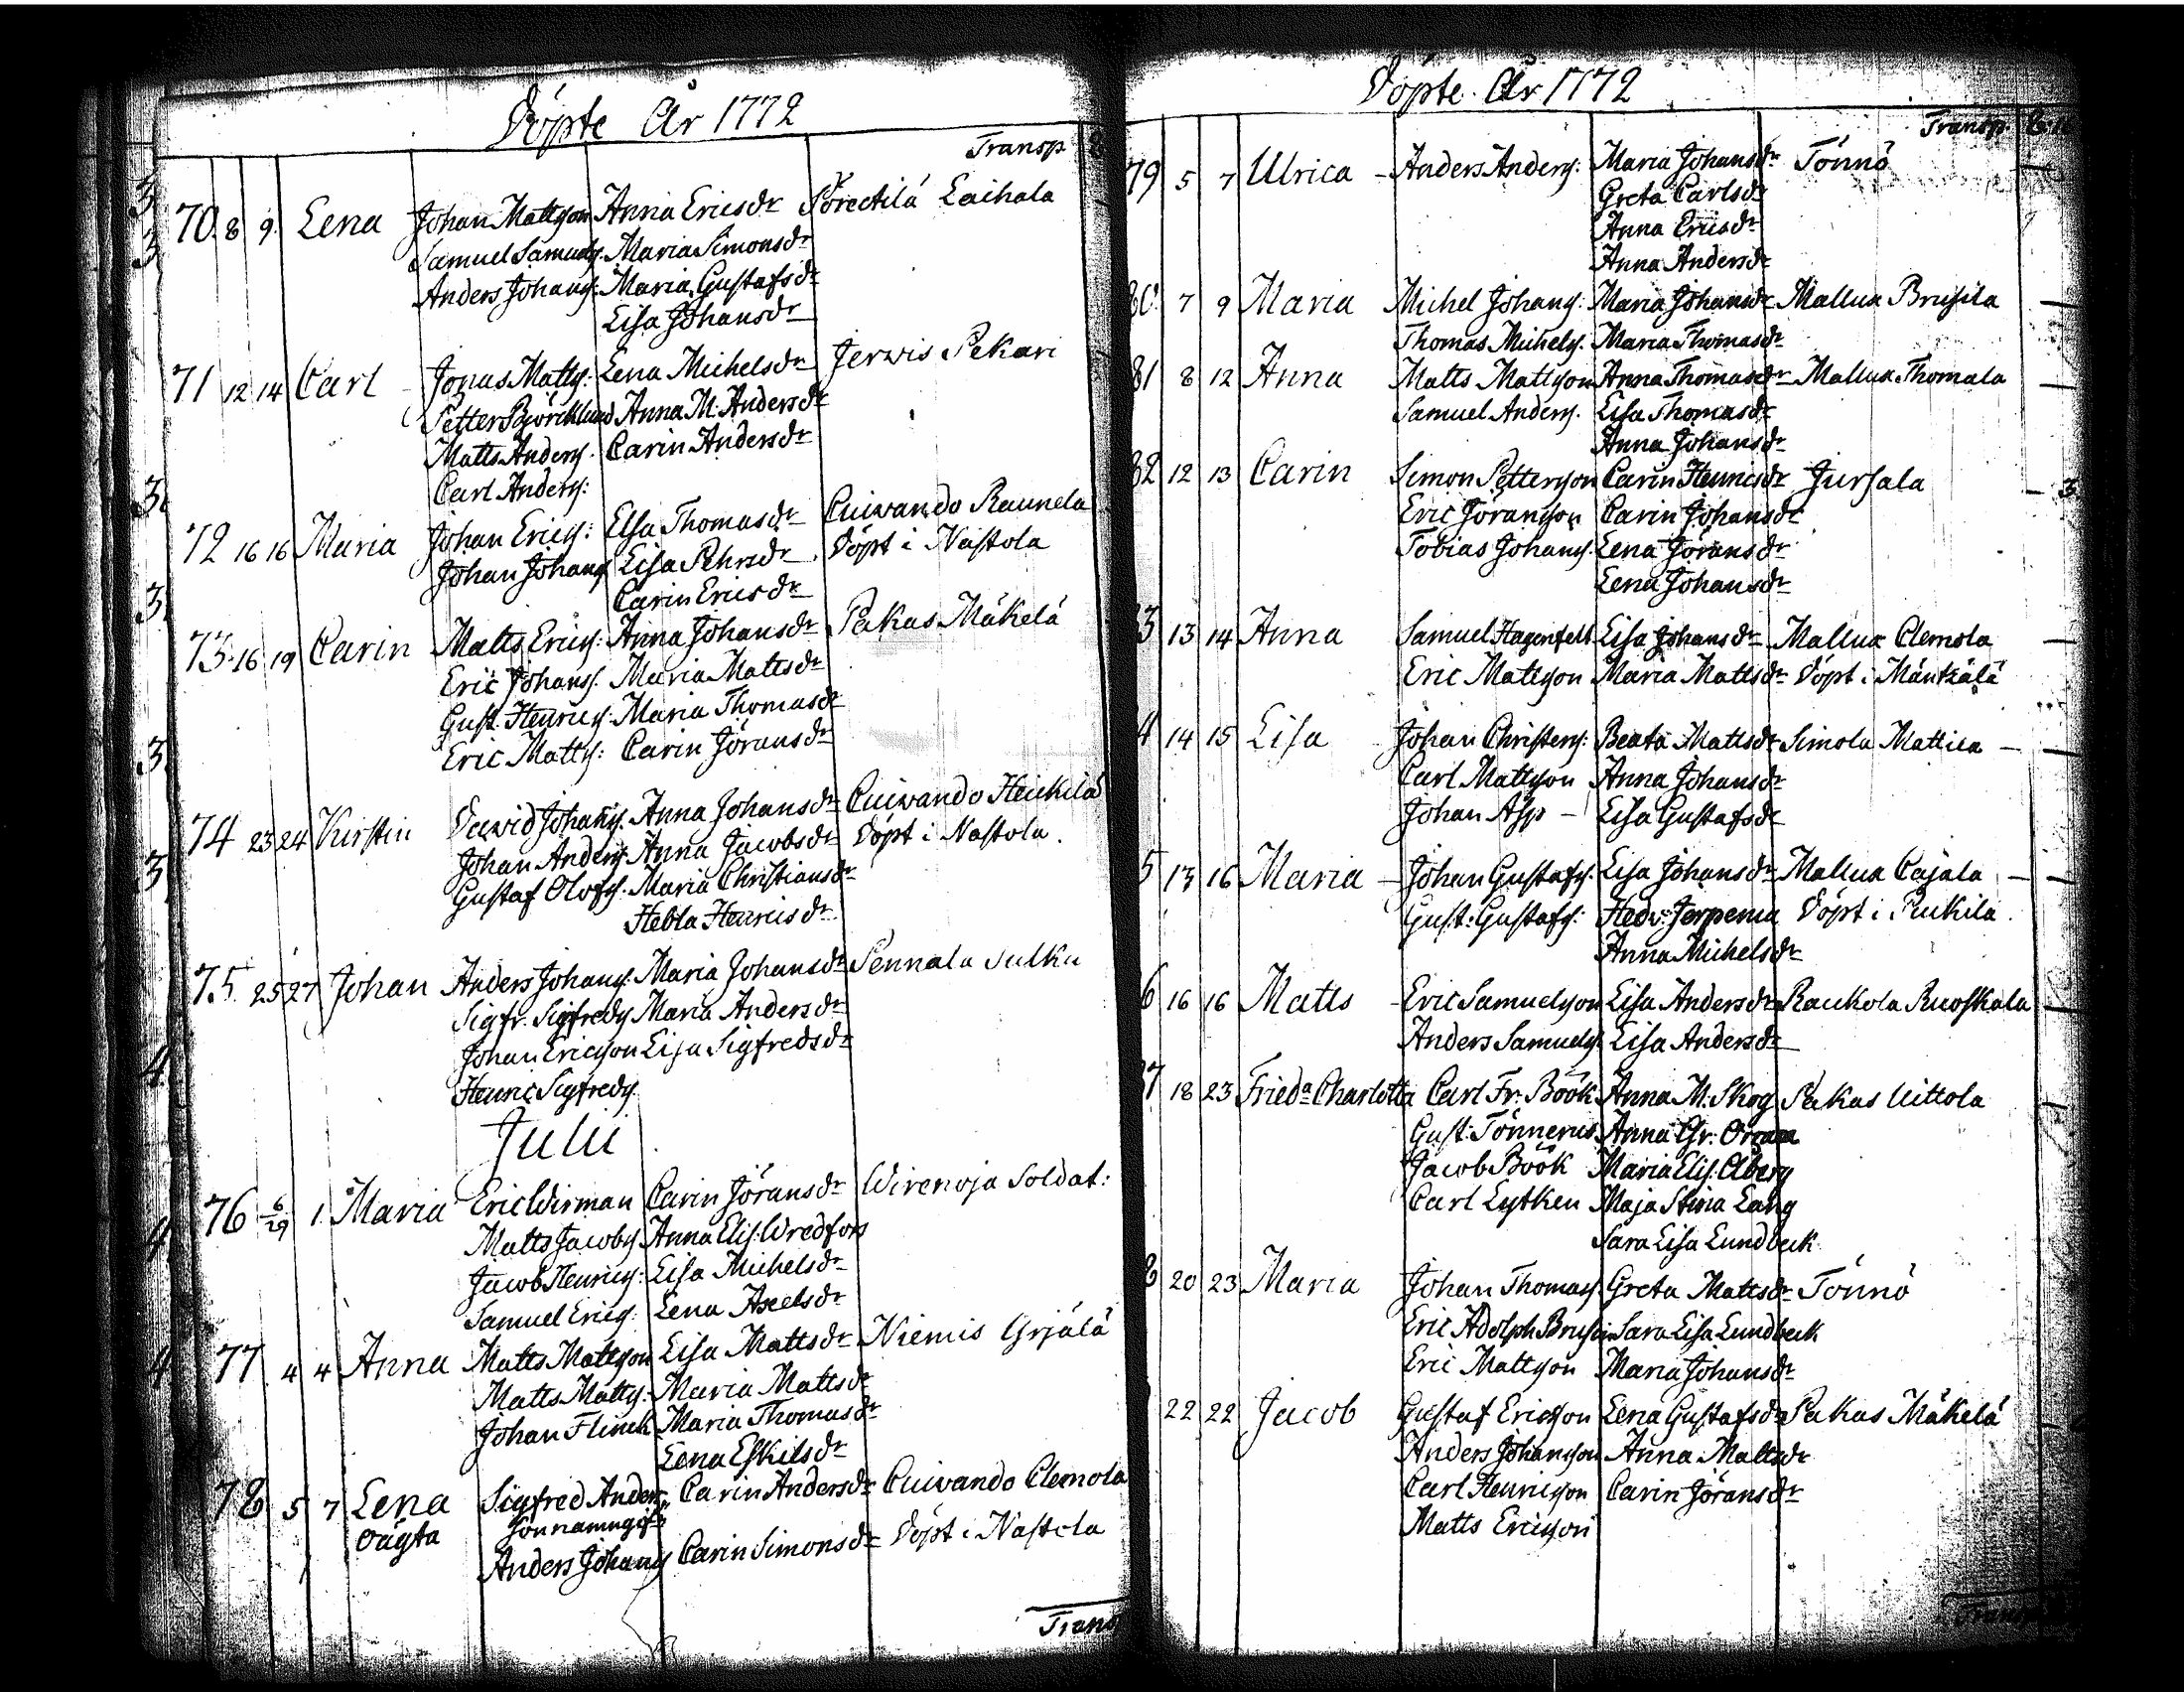 Döpte År 1772
Transp
70. 8 9. Lena Johan Mattson Anna Ericsdr Sörectilä Laihala
Samuel Samuels. Maria Simonsdr
Anders Johans: Maria Gustafsdr
Lisa Johansdr
71 12 14 Carl Jonas Matts: Lena Michelsdr Jerwis Pekari
Petter Björcklund Anna M: Andersdr
Matts Anders. Carin Andersdr
Carl Anders:
72 16 16 Maria Johan Erics: Elsa Thomasdr Cuiwando Raunela
Johan Johans Lisa Pehrsdr Döpt i Nastola
Carin Ericsdr
73 16 19 Carin Matts Erics: Anna Johansdr Pakas Mäkelä
Eric Johans. Maria Mattsdr
Gust. Henrics. Maria Thomasdr
Eric Matts: Carin Jöransdr
74 23 24 Kirstin David Johans. Anna Johansdr Cuiwando Heickilä
Johan Anders Anna Jacobsdr Döpt i Nastola.
Gustaf Olofs. Maria Christiansdr
Hebla Henricsdr.
75 25 27 Johan Anders Johans: Maria Johansdr Pennala Sulku
Sigfr. Sigfreds Maria Andersdr
Johan Ericson Lisa Sigfredsdr
Henric Sigfreds.
Julii
76 6/29 1. Maria Eric Wirman Carin Jöransdr Wirenoja Soldat:
Matts Jacobs. Anna Elis: Wredfors
Jacob Henrics: Lisa Michelsdr
Samuel Erics: Lena Axelsdr
77 4 4 Anna Matts Mattson Lisa Mattsdr Niemis Yrjälä
Matts Matts: Maria Mattsdr
Johan Flinck Maria Thomasdr
Lena Eskilsdr
78 5 7 Lena Sigfred Anders. Carin Andersdr Cuivando Clemola
oägta
Anders Johans Carin Simonsdr Döpt i Nastola
Transp
Döpte År 1772
Transp
79 5 7 Ulrica - Anders Anders: Maria Johansdr Tönnö
Greta Carlsdr
Anna Ericsdr
Anna Andersdr
80 7 9 Maria Michel Johans: Maria Johansdr Mallux Brusila
Thomas Michels. Maria Thomasdr
81 8 12 Anna Matts Mattson Anna Thomasdr Mallux Thomala
Samuel Anders. Lisa Thomasdr
Anna Johansdr
82 12 13 Carin Simon Petterson Carin Henricsdr Jursala
Eric Jöranson Carin Johansdr
Tobias Johans. Lena Jöransdr
Lena Johansdr
3 13 14 Anna Samuel Hagenfelt Lisa Johansdr Mallux Clemola
Eric Mattson Maria Mattsdr Döpt i Mäntzälä
4 14 15 Lisa Johan Christers: Beata Mattsdr Simola Mattila
Carl Mattson Anna Johansdr
Johan Asp - Lisa Gustafsdr
5 13 16 Maria - Johan Gustafs. Lisa Johansdr Mallux Cajala
Gust: Gustafs: Hedv: Jerpenia Döpt i Pukila.
Anna Michelsdr
6 16 16 Matts - Eric Samuelson Lisa Andersdr Raukola Ruoskala
Anders Samuels. Lisa Andersdr
7 18 23 Fried: Charlotta Carl Fr: Böök Anna M: Skog Pakas Uittola
Gust: Tönnerus Anna Gr:
Jacob Böök Maria Elis: Åberg
Carl Lytken Maja Stina Lang
Sara Lisa Lundbeck
8 20 23 Maria Johan Thomas. Greta Mattsdr Tönnö
Eric Adolph Brusiin Sara Lisa Lundbeck
Eric Mattson Maria Johansdr
22 22 Jacob Gustaf Ericsson Lena Gustafsdr Pakas Mäkelä
Anders Johanson Anna Mattsdr
Carl Henricson Carin Jöransdr
Matts Ericsson
Transp